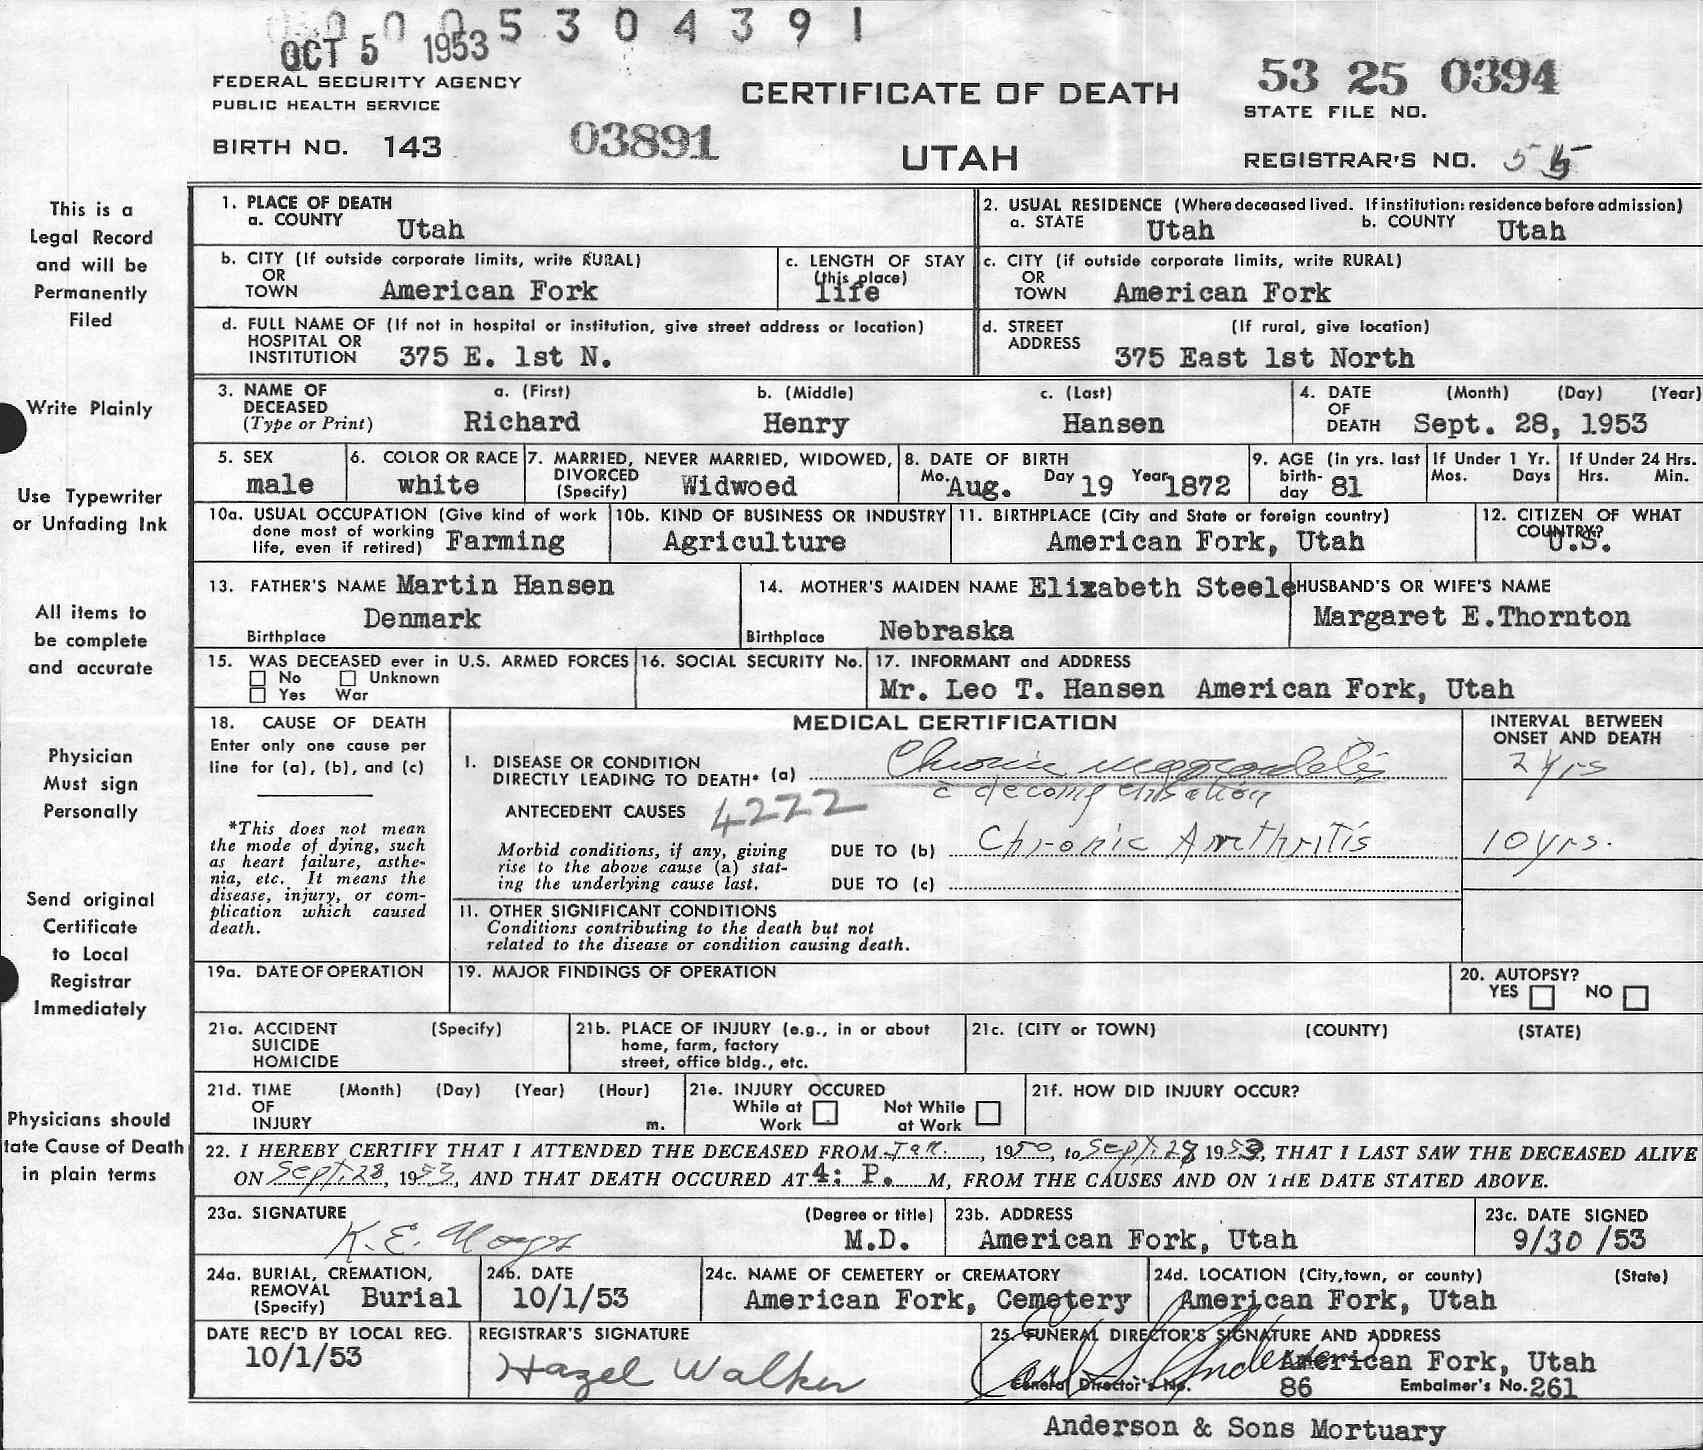 0 0 0 5 3 0 4 3 9 1
OCT 5 1953
FEDERAL SECURITY AGENCY
PUBLIC HEALTH SERVICE
BIRTH NO. 143
03891
CERTIFICATE OF DEATH
UTAH
53 25 0394
STATE FILE NO.
REGISTRAR'S NO. 5
This is a
Legal Record
and will be
Permanently
Filed
Write Plainly
Use Typewriter
or Unfading Ink
All items to
be complete
and accurate
Physician
Must sign
Personally
Send original
Certificate
to Local
Registrar
Immediately
Physicians should
tate Cause of Death
in plain terms
1. PLACE OF DEATH
a. COUNTY Utah
2. USUAL RESIDENCE (Where deceased lived. If institution: residence before admission)
a. STATE Utah b. COUNTY Utah
b. CITY (If outside corporate limits, write RURAL)
OR
TOWN American Fork
c. LENGTH OF STAY
(this place)
life
c. CITY (if outside corporate limits, write RURAL)
OR
TOWN American Fork
d. FULL NAME OF (If not in hospital or institution, give street address or location)
HOSPITAL OR
INSTITUTION 375 E. 1st N.
d. STREET (If rural, give location)
ADDRESS
375 East 1st North
3. NAME OF DECEASED (Type or Print)
a. (First) b. (Middle) c. (Last)
Richard Henry Hansen
4. DATE OF DEATH (Month) (Day) (Year)
Sept. 28, 1953
5. SEX
male
6. COLOR OR RACE
white
7. MARRIED, NEVER MARRIED, WIDOWED,
DIVORCED
(Specify) Widwoed
8. DATE OF BIRTH
Mo. Aug. Day 19 Year 1872
9. AGE (in yrs. last
birth-
day 81
If Under 1 Yr.
Mos. Days
If Under 24 Hrs.
Hrs. Min.
10a. USUAL OCCUPATION (Give kind of work
done most of working
life, even if retired) Farming
10b. KIND OF BUSINESS OR INDUSTRY
Agriculture
11. BIRTHPLACE (City and State or foreign country)
American Fork, Utah
12. CITIZEN OF WHAT
COUNTRY?
U.S.
13. FATHER'S NAME Martin Hansen
Birthplace Denmark
14. MOTHER'S MAIDEN NAME Elizabeth Steele
Birthplace Nebraska
HUSBAND'S OR WIFE'S NAME
Margaret E.Thornton
15. WAS DECEASED ever in U.S. ARMED FORCES
No Unknown
Yes War
16. SOCIAL SECURITY No.
17. INFORMANT and ADDRESS
Mr. Leo T. Hansen American Fork, Utah
18. CAUSE OF DEATH
Enter only one cause per
line for (a), (b), and (c)
*This does not mean
the mode of dying, such
as heart failure, asthe-
nia, etc. It means the
disease, injury, or com-
plication which caused
death.
MEDICAL CERTIFICATION
INTERVAL BETWEEN
ONSET AND DEATH
I. DISEASE OR CONDITION
DIRECTLY LEADING TO DEATH* (a) Chronic 2 yrs
c decompensation
ANTECEDENT CAUSES 4222
Morbid conditions, if any, giving
rise to the above cause (a) stat-
ing the underlying cause last.
DUE TO (b) Chronic Arthritis 10 yrs.
DUE TO (c)
11. OTHER SIGNIFICANT CONDITIONS
Conditions contributing to the death but not
related to the disease or condition causing death.
19a. DATE OF OPERATION
19. MAJOR FINDINGS OF OPERATION
20. AUTOPSY?
YES NO
21a. ACCIDENT (Specify)
SUICIDE
HOMICIDE
21b. PLACE OF INJURY (e.g., in or about
home, farm, factory
street, office bldg., etc.
21c. (CITY or TOWN) (COUNTY) (STATE)
21d. TIME (Month) (Day) (Year) (Hour)
OF
INJURY m.
21e. INJURY OCCURED
While at Work Not While at Work
21f. HOW DID INJURY OCCUR?
22. I HEREBY CERTIFY THAT I ATTENDED THE DECEASED FROM Jan. , 1950, to Sept. 28 1953, THAT I LAST SAW THE DECEASED ALIVE
ON Sept. 28, 1953, AND THAT DEATH OCCURED AT 4: P. M, FROM THE CAUSES AND ON THE DATE STATED ABOVE.
23a. SIGNATURE (Degree or title)
K. E. M.D.
23b. ADDRESS
American Fork, Utah
23c. DATE SIGNED
9/30/53
24a. BURIAL, CREMATION,
REMOVAL
(Specify) Burial
24b. DATE
10/1/53
24c. NAME OF CEMETERY or CREMATORY
American Fork, Cemetery
24d. LOCATION (City, town, or county) (State)
American Fork, Utah
DATE REC'D BY LOCAL REG.
10/1/53
REGISTRAR'S SIGNATURE
Hazel Walker
25. FUNERAL DIRECTOR'S SIGNATURE AND ADDRESS
Earl S. Anderson American Fork, Utah
General Director's No. 86 Embalmer's No. 261
Anderson & Sons Mortuary